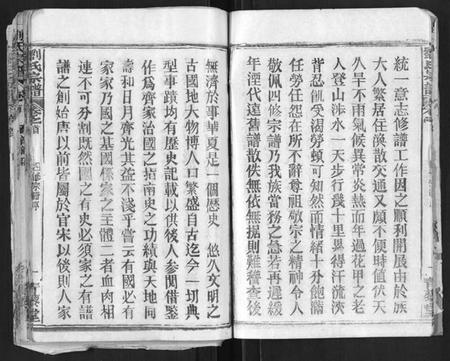 統一意志修譜工作因之順利開展由於族
大人繁居住渙散交通又頗不便時值伏天
久旱不雨氣候異常炎熱而年過花甲之老
人登山涉水一天步行幾十里累得汗流浹
背忍飢受渴勞頓可知然而情緒十分飽滿
任勞任怨在所不辭尊祖敬宗之精神令人
敬佩四修宗譜乃我族當務之急若再過緩
年湮代遠舊譜散佚無依無據則難警查後
無濟於事華夏是一個歷史 悠久文明之
古國地大物博人口繁盛自古迄今一切典
型事蹟均有歷史記載以供後人參閱借鑒
作為齊家治國之指南史之功績與天地同
壽和日月齊光其益不淺乎嘗云有國必有
家家乃國之基國係家之主體二者血肉相
連不可分割既然國之有史必須家之有譜
譜之創始唐以前皆屬於官宋以後則人家
劉氏宗譜
卷首